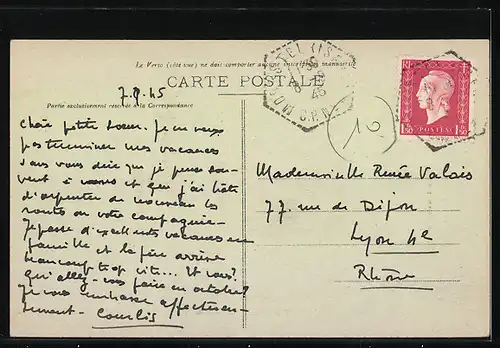 Le Verso (côté vue) ne doit comporter aucune inscription manuscrite
CARTE POSTALE
7.8.45
Partie exclusivement réservée à la Correspondance
Chère petite soeur. Je ne veux
pas terminer mes vacances
sans vous dire que je pense sou-
vent à vous et que j'ai hâte
d'arpenter de nouveau les
routes en votre compagnie.
Je passe d'excellentes vacances en
famille et la fin arrive
beaucoup trop vite... Et vous?
Qu'allez-vous faire en octobre?
Je vous embrasse affectueu-
sement - Courlis
RF
1F50 POSTES 1F50
Mademoiselle Renée Valais
77, rue de Dijon
Lyon 4e
Rhône